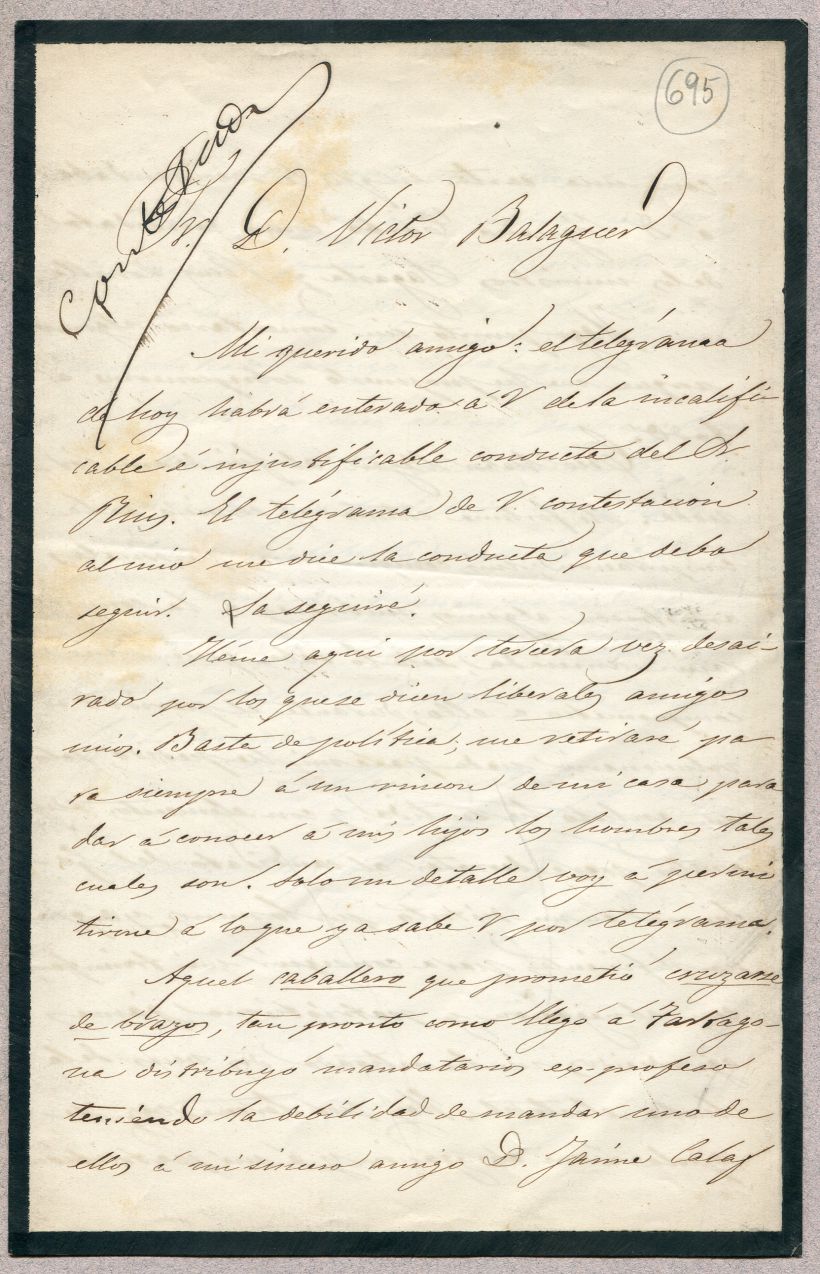 695
Contestada
Sr. D. Victor Balaguer
Mi querido amigo: el telégrama
de hoy habrá enterado á V. de la incalifi-
cable é injustificable conducta del Sr.
Rius. El telégrama de V. contestacion
al mio me dice la conducta que debo
seguir. La seguiré.
Héme aqui por tercera vez desai-
rado por los que se dicen liberales amigos
mios. Baste de política; me retiraré pa
ra siempre á un rincon de mi casa para
dar á conocer á mis hijos los hombres tales
cuales son. Solo un detalle voy á permi
tirme á lo que ya sabe V. por telégrama.
Aquel caballero que prometió cruzarse
de brazos, tan pronto como llegó á Tarrago-
na distribuyó mandatarios ex-profeso
teniendo la debilidad de mandar uno de
ellos á mi sincero amigo D. Jaime Calaf